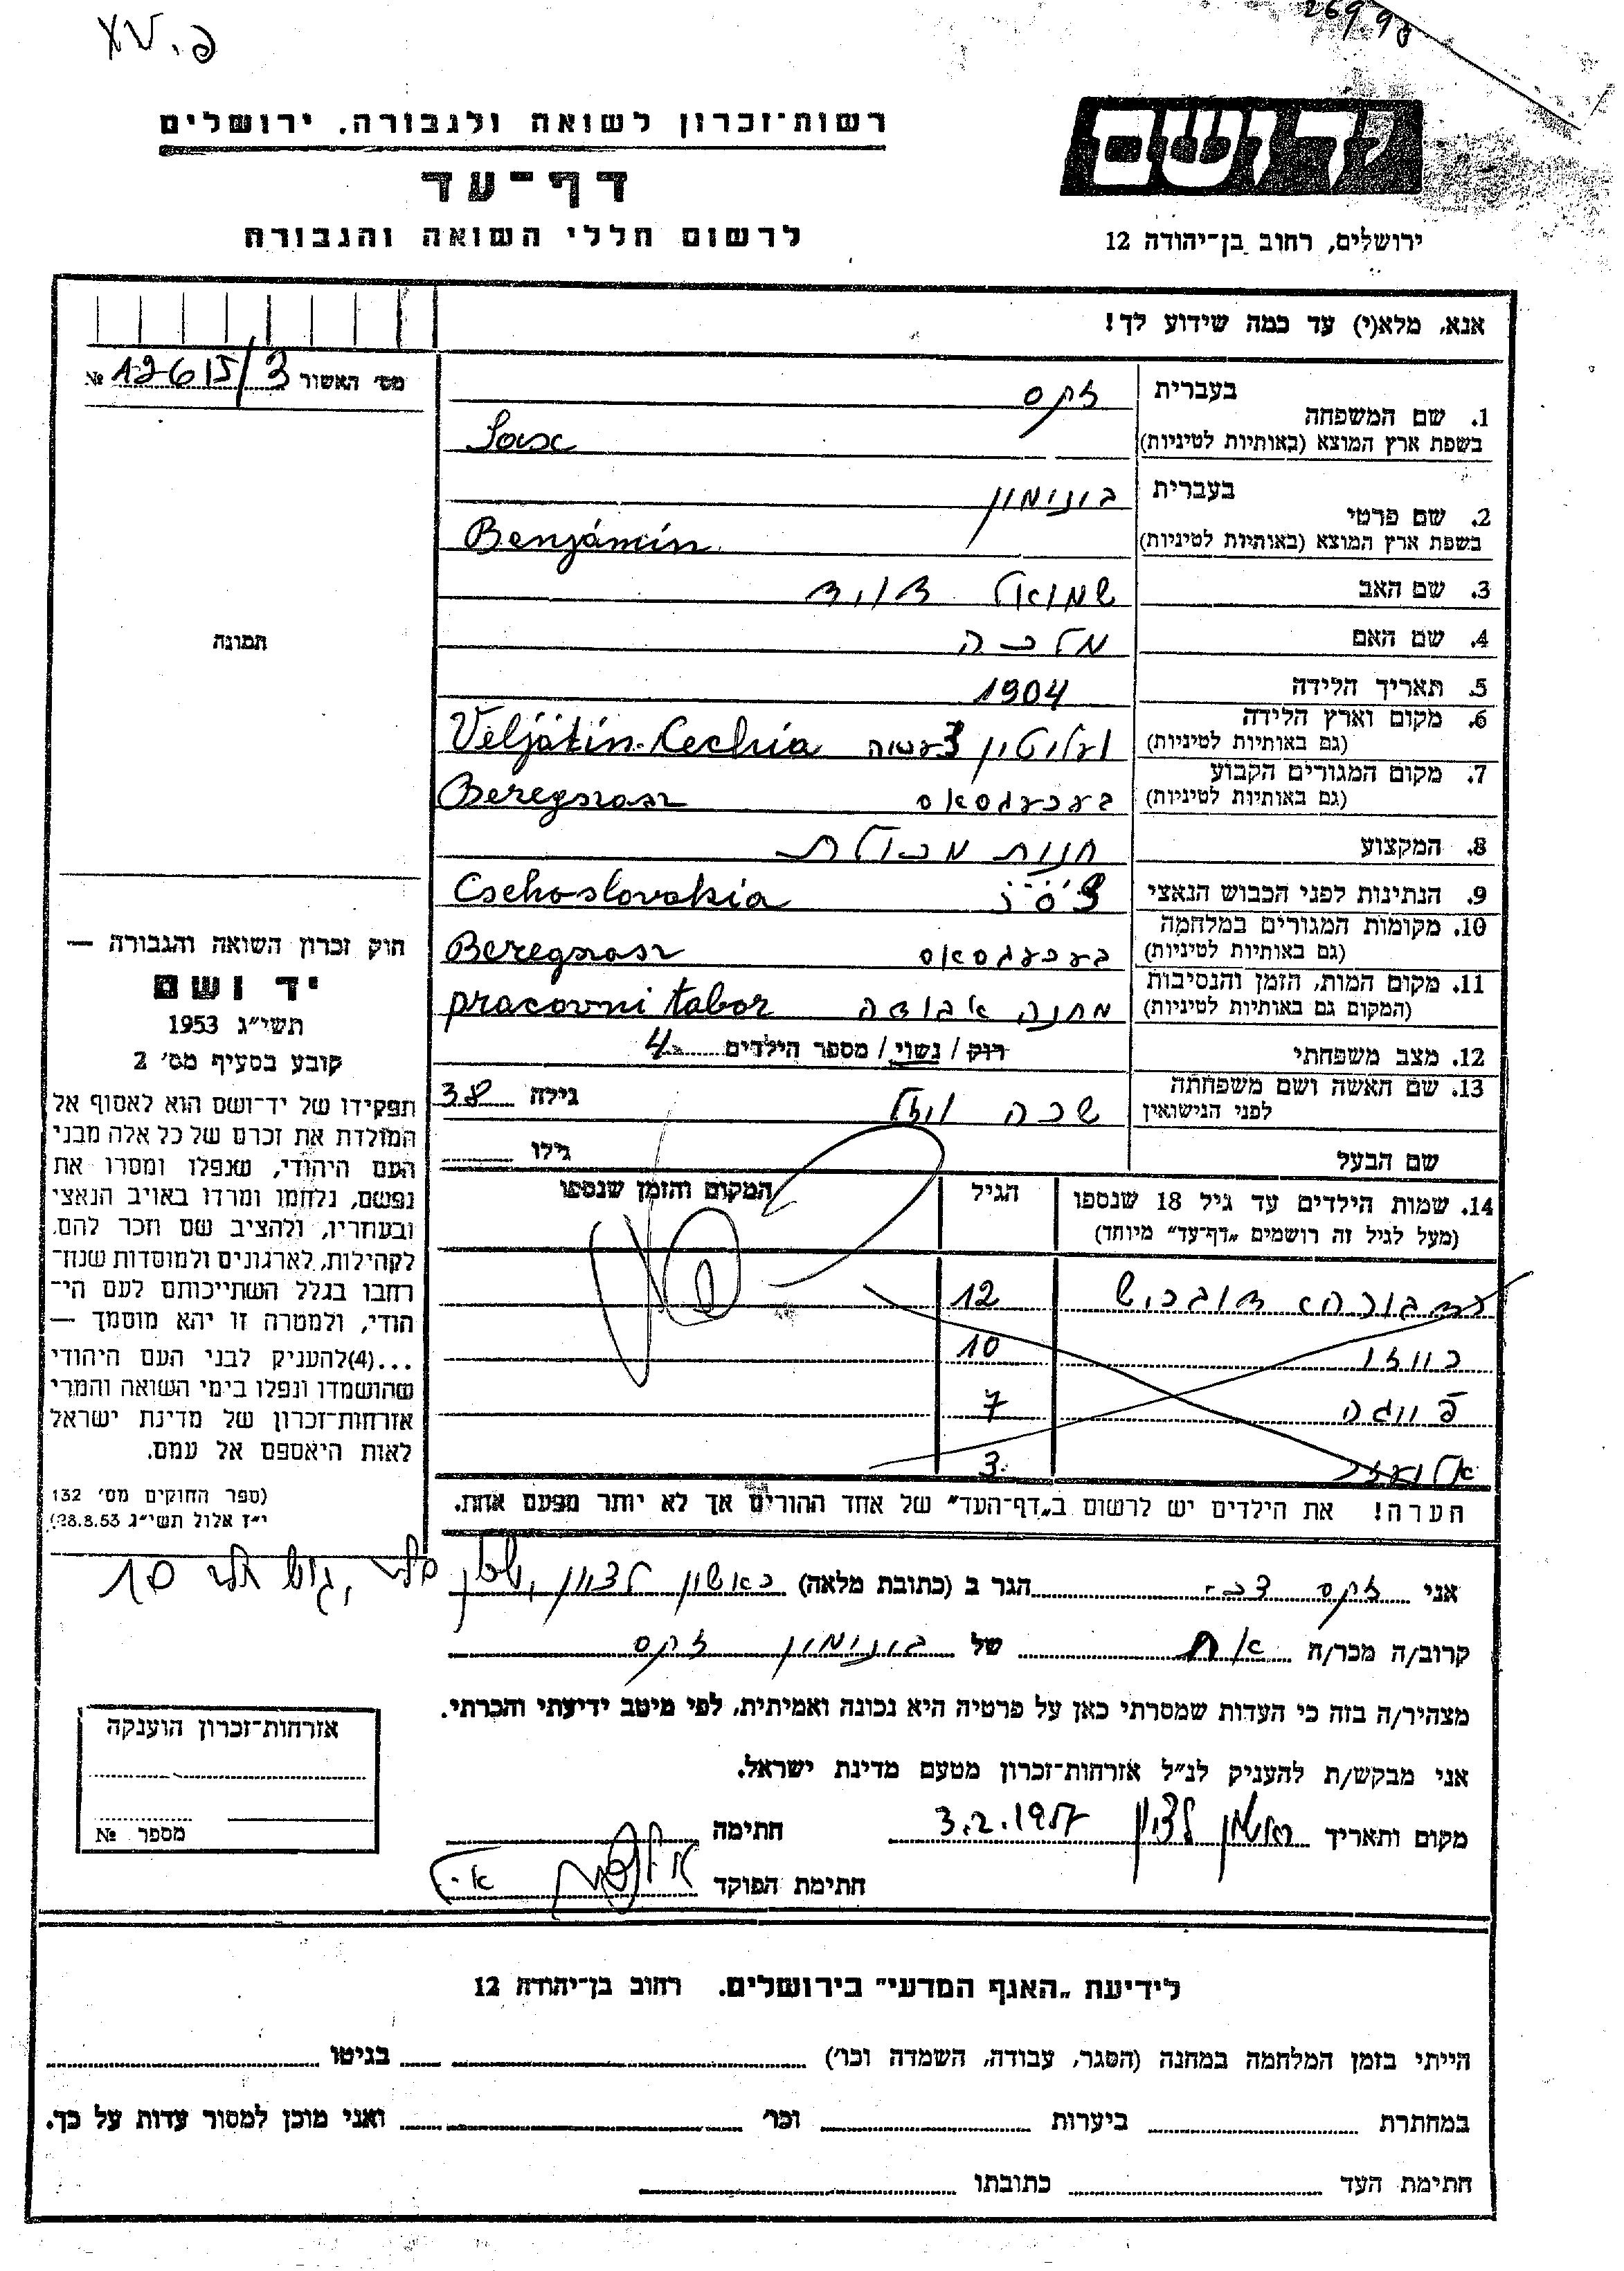 פ. עא
26998
רשות־זכרון לשואה ולגבורה. ירושלים
דף־עד
לרשום חללי השואה והגבורה
יד ושם
ירושלים, רחוב בן־יהודה 12
אנא, מלא(י) עד כמה שידוע לך!
מס׳ האשור 12615/3 №
1. שם המשפחה
בעברית זקס
בשפת ארץ המוצא (באותיות לטיניות) Sax
2. שם פרטי
בעברית בנימין
בשפת ארץ המוצא (באותיות לטיניות) Benjámin
3. שם האב שמואל דוד
4. שם האם מלכה
5. תאריך הלידה 1904
6. מקום וארץ הלידה
(גם באותיות לטיניות) Veljátin
7. מקום המגורים הקבוע
(גם באותיות לטיניות) בערעגסאס Beregszasz
8. המקצוע חנות מכולת
9. הנתינות לפני הכבוש הנאצי Csehoslovakia
10. מקומות המגורים במלחמה
(גם באותיות לטיניות) בערעגסאס Beregszasz
11. מקום המות, הזמן והנסיבות
(המקום גם באותיות לטיניות) מחנה עבודה pracovni tabor
12. מצב משפחתי רוק / נשוי / מספר הילדים 4
13. שם האשה ושם משפחתה
לפני הנישואין שרה גילה 38
שם הבעל גילו
14. שמות הילדים עד גיל 18 שנספו
(מעל לגיל זה רושמים „דף־עד״ מיוחד)
הגיל
המקום והזמן שנספו
12
10
7
אליעזר 3
הערה! את הילדים יש לרשום ב„דף־העד״ של אחד ההורים אך לא יותר מפעם אחת.
תמונה
חוק זכרון השואה והגבורה —
יד ושם
תשי״ג 1953
קובע בסעיף מס׳ 2
תפקידו של יד־ושם הוא לאסוף אל
המולדת את זכרם של כל אלה מבני
העם היהודי, שנפלו ומסרו את
נפשם, נלחמו ומרדו באויב הנאצי
ובעוזריו, ולהציב שם וזכר להם,
לקהילות, לארגונים ולמוסדות שנח־
רבו בגלל השתייכותם לעם הי־
הודי, ולמטרה זו יהא מוסמך —
...(4)להעניק לבני העם היהודי
שהושמדו ונפלו בימי השואה והמרי
אזרחות־זכרון של מדינת ישראל
לאות היאספם אל עמם.
(ספר החוקים מס׳ 132
י״ז אלול תשי״ג 28.8.53)
אני זקס הגר ב (כתובת מלאה) ראשון לציון
קרוב/ה מכר/ה אח של בנימין זקס
מצהיר/ה בזה כי העדות שמסרתי כאן על פרטיה היא נכונה ואמיתית, לפי מיטב ידיעתי והכרתי.
אני מבקש/ת להעניק לנ״ל אזרחות־זכרון מטעם מדינת ישראל.
מקום ותאריך ראשון לציון 3.2.1957 חתימה
חתימת הפוקד
אזרחות־זכרון הוענקה
מספר №
לידיעת „האגף המדעי״ בירושלים. רחוב בן־יהודה 12
הייתי בזמן המלחמה במחנה (הסגר, עבודה, השמדה וכו׳) בגיטו
במחתרת ביערות וכו׳ ואני מוכן למסור עדות על כך.
חתימת העד כתובתו